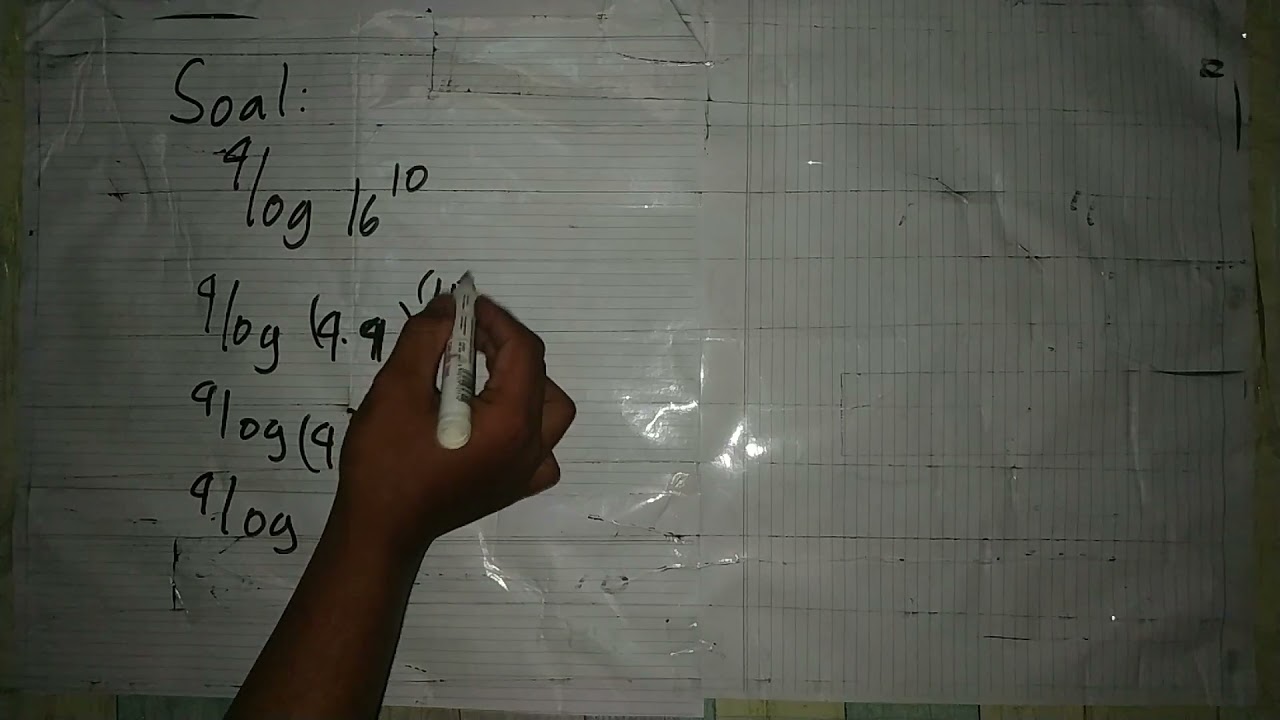 Soal:
⁴log 16¹⁰
⁴log (4.4)
⁴log (4
⁴log